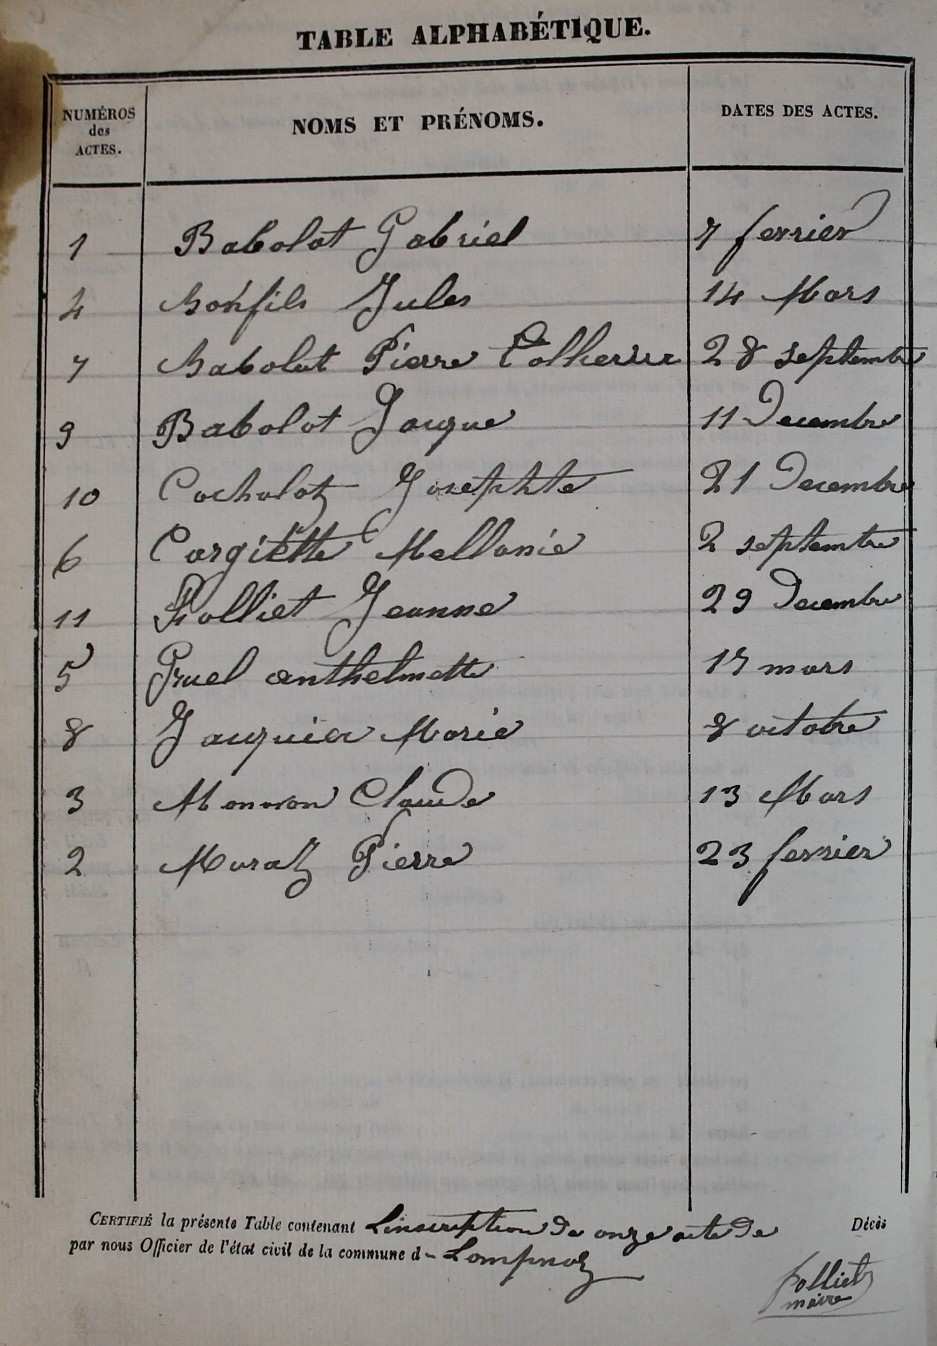 TABLE ALPHABÉTIQUE.
NUMÉROS des ACTES. NOMS ET PRÉNOMS. DATES DES ACTES.
1 Babolat Gabriel 7 fevrier
4 Bonfils Jules 14 Mars
7 Babolat Pierre 28 septembre
9 Babolat Jacque 11 Decembre
10 Cochalat Josephte 21 Decembre
6 Cargiette Mellanie 2 septembre
11 Folliet Jeanne 29 Decembre
5 Gruel anthelmette 17 mars
8 Jacquier Marie 8 octobre
3 Claude 13 Mars
2 Muraz Pierre 23 fevrier
CERTIFIÉ la présente Table contenant L'inscription de onze acte de Décès
par nous Officier de l'état civil de la commune d- Lompnaz
folliet
maire